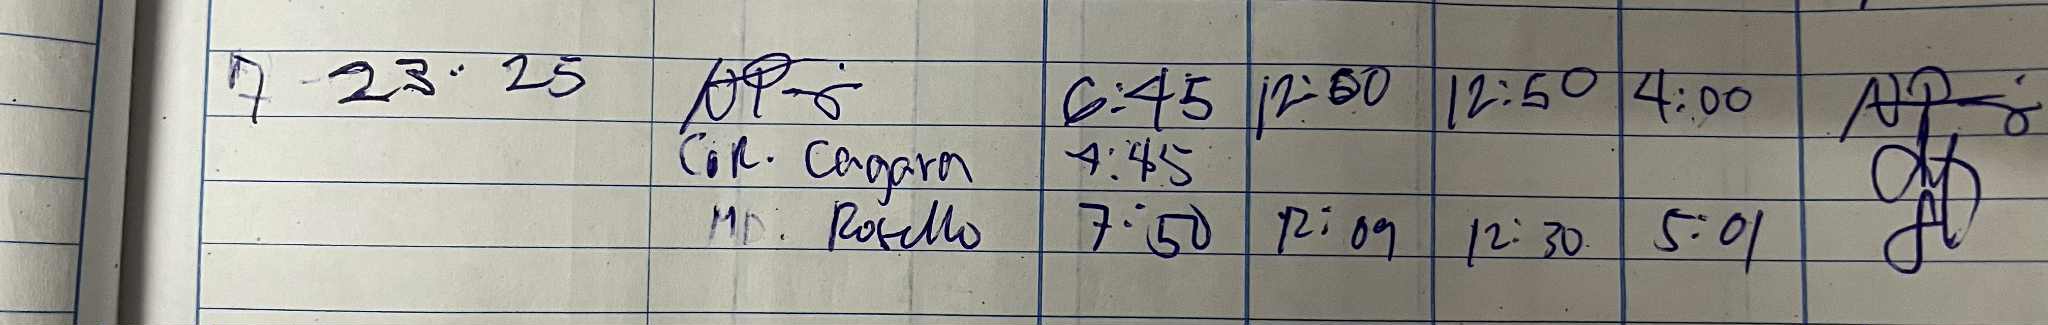 7-23-25 6:45 12:50 12:50 4:00
C.R. Cagara 7:45
MD. Rosello 7:50 12:09 12:30 5:01